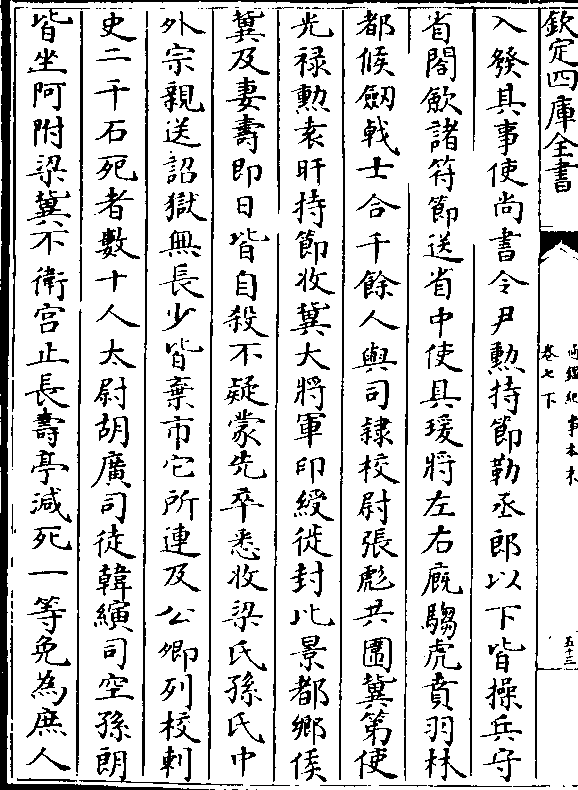 欽定四庫全書
通鑑紀事本末
卷七下
五十三
入發具事使尚書令尹勲持節勒丞郎以下皆操兵守
省閣歛諸符節送省中使具瑗將左右廐騶虎賁羽林
都候劒戟士合千餘人與司隷校尉張彪共圍冀第使
光禄勲袁盱持節收冀大將軍印綬徙封比景都鄉侯
冀及妻壽即日皆自殺不疑蒙先卒悉收梁氏孫氏中
外宗親送詔獄無長少皆棄市它所連及公卿列校刺
史二千石死者數十人太尉胡廣司徒韓縯司空孫朗
皆坐阿附梁冀不衛宫止長壽亭減死一等免為庶人